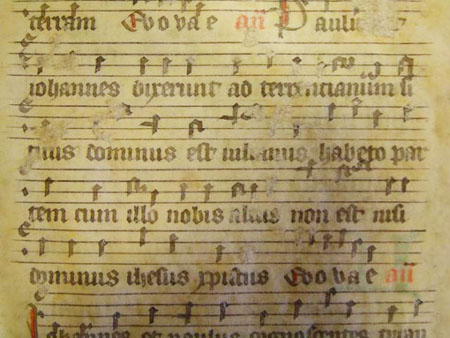 terram Evovae an Paulus
iohannes dixerunt ad terentianum si
tuus dominus est iulianus habeto par
tem cum illo nobis alius non est nisi
dominus ihesus xpistus Evovae an
Iohannes et paulus cognoscentes tiran